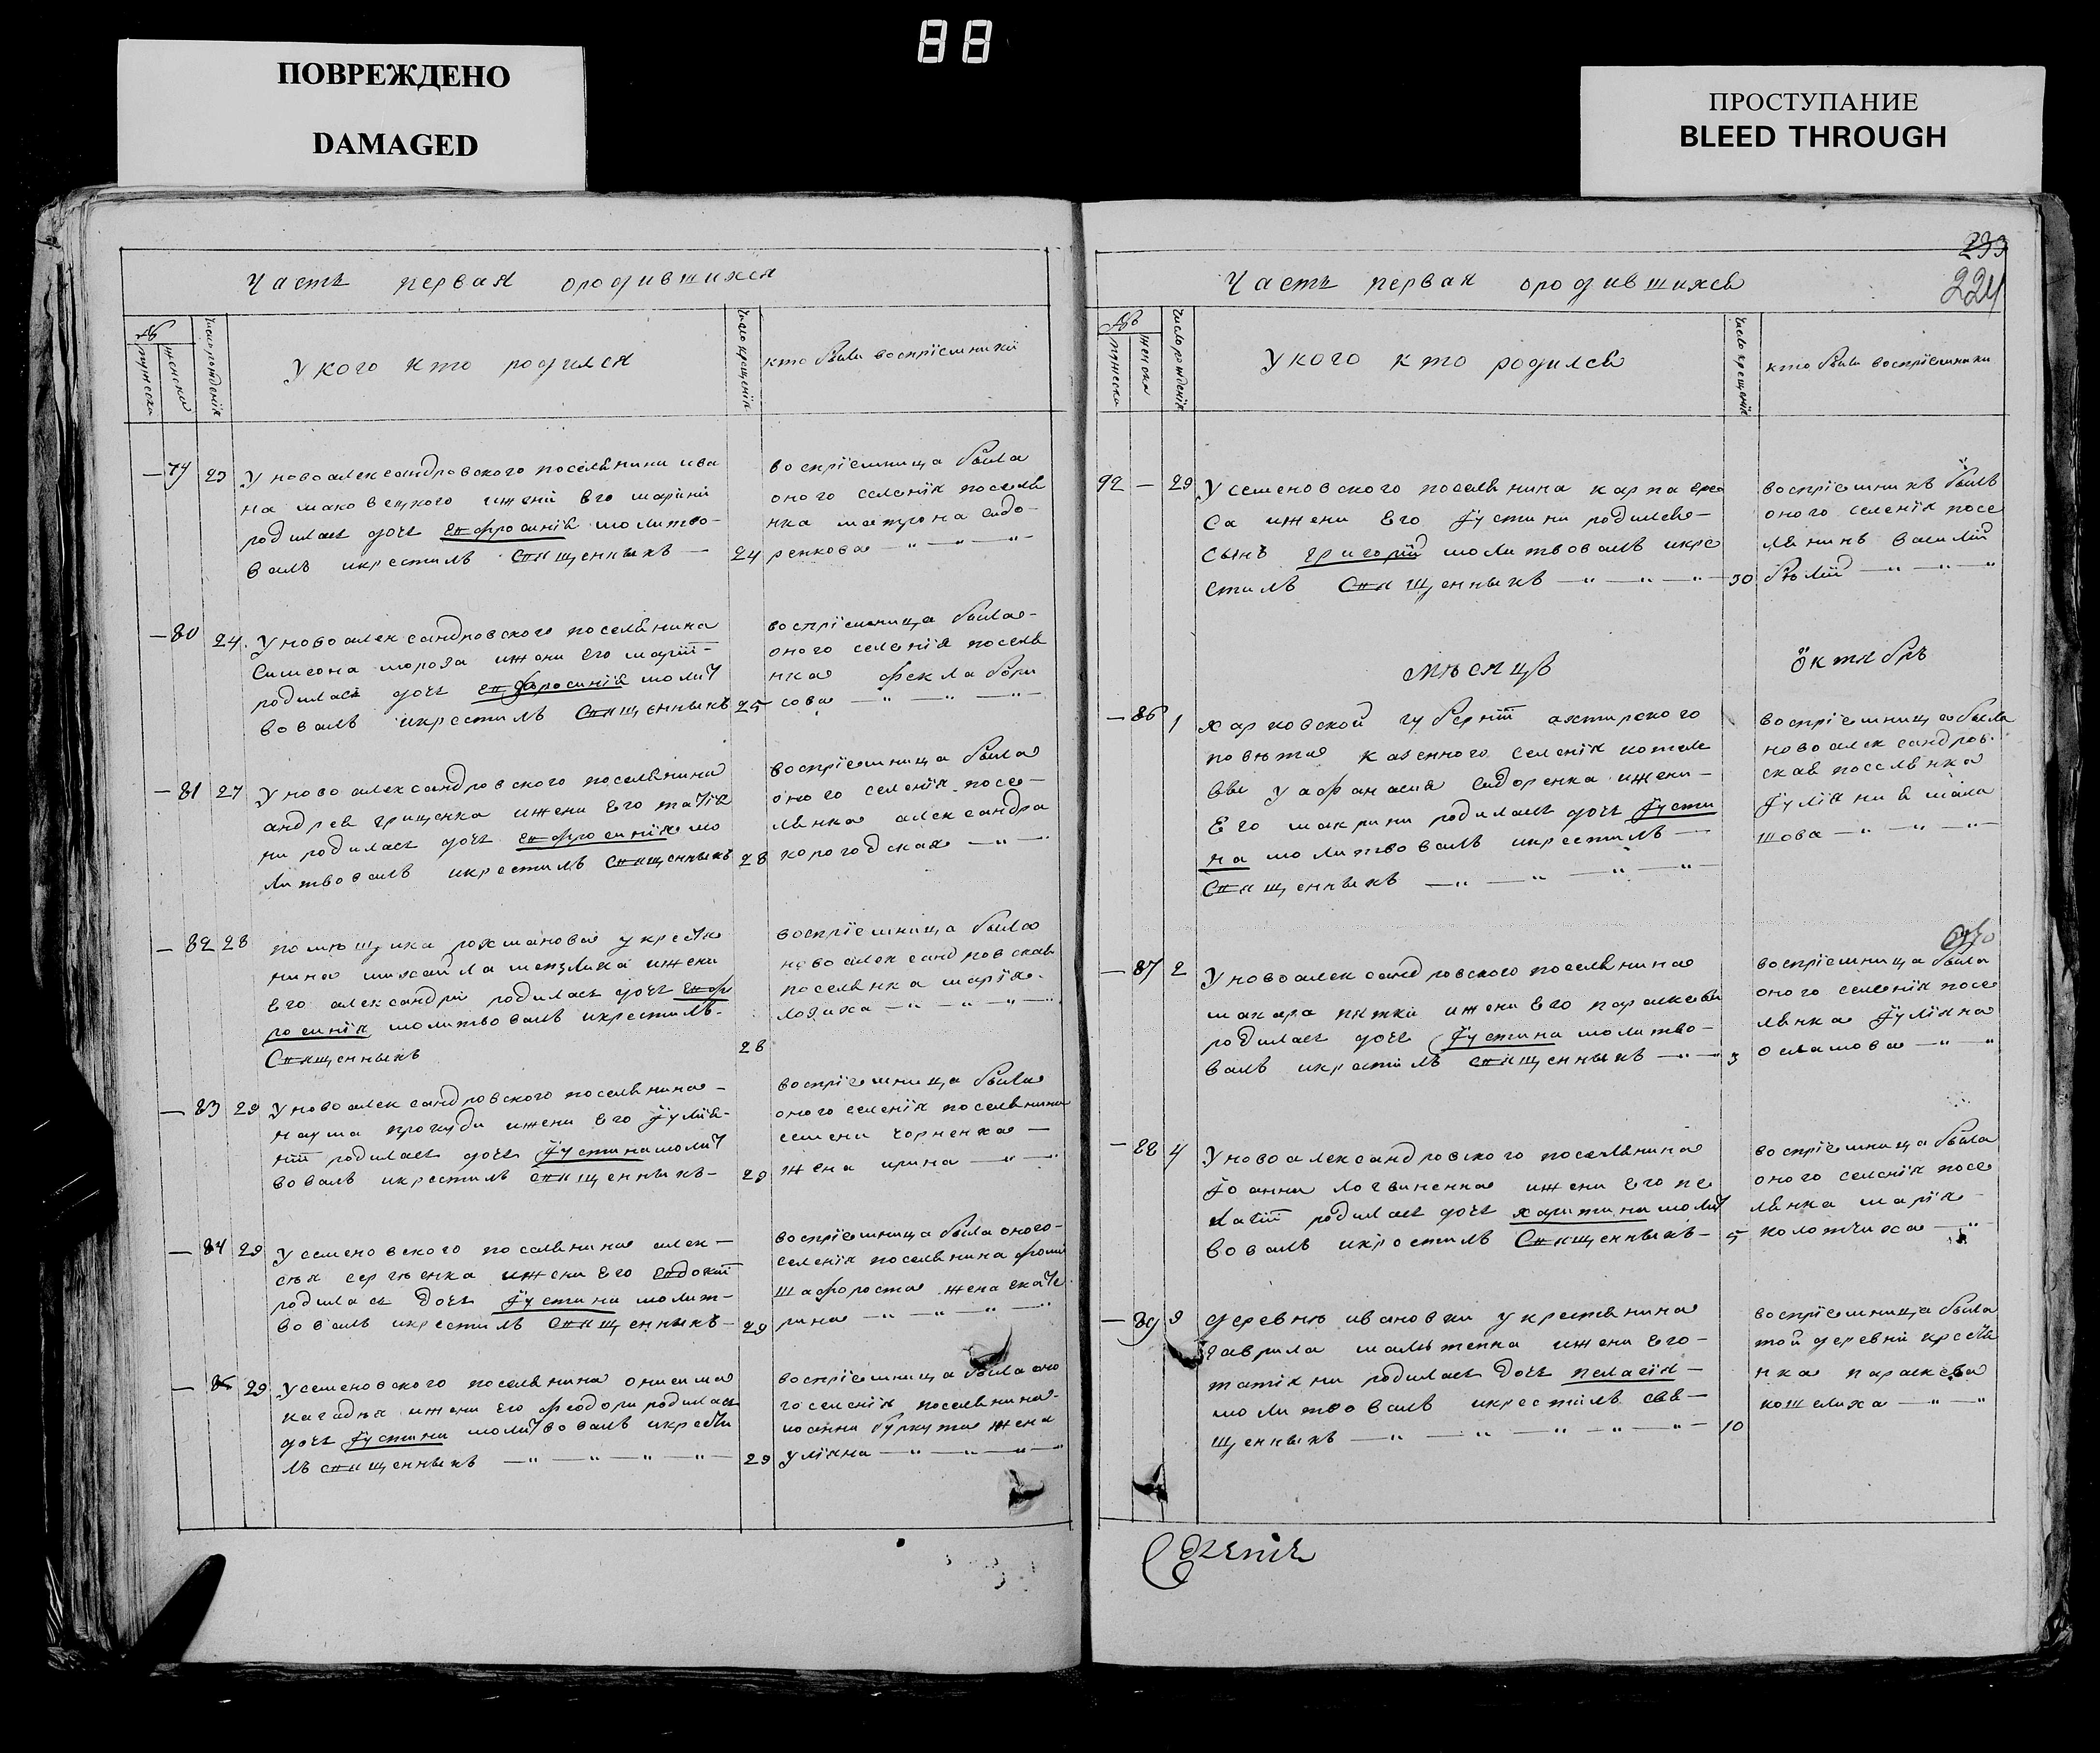 88
ПОВРЕЖДЕНО
DAMAGED
ПРОСТУПАНИЕ
BLEED THROUGH
Часть первая ородившихся
№
мужеска
женска
число рожденія
У кого кто родился
число крещенія
кто были воспріемники
— 79 23 У новоалександровского поселянина ива
на маковецкого ижени его марини
родилась дочь Епфросинія молитво-
валъ икрестилъ Сп҃ященныкъ — 24
воспріемница была
оного селенія поселя
нка матрона сидо-
ренкова — " — " — "
— 80 24. У новоалександровского поселянина
Симеона мороза ижени его маріи-
родилась дочь епфросинія молит
вовалъ икрестилъ Сп҃ященныкъ 25
воспріемница была-
оного селенія поселя
нка фекла бори
сова — " — " — "
— 81 27 У новоалександровского поселянина
андрея грищенка ижени его татія
ни родилась дочь епфросинія мо
литвовалъ икрестилъ Сп҃ященныкъ 28
воспріемница была
оного селенія посе—
лянка александра
корогодская — " —
— 82 28 помѣщика рохманова у крестя
нина михайла ижени
его александри родилась дочь Епф
росинія молитвовалъ икрестилъ.
Сп҃ященныкъ 28
воспріемница была
новоалександровская
поселянка марія.
лозиха — " — " — " —
— 83 29 У новоалександровского поселянина —
наума прокуди ижени его Іулія-
ніи родилась дочь Іустина молит
вовалъ икрестилъ сп҃ященныкъ- 29
воспріемница была
оного селенія поселянина
семена чорненка —
жена ирина — " —
— 84 29 У семеновского поселянина алек —
сѣя сергѣенка ижени его Евдокіи
родилась дочь Іустина молит—
вовалъ икрестилъ Сп҃ященныкъ- 29
воспріемница была оного-
селенія поселянина фоми
шафороста жена екате
рина — " — " — " —
— 85 29 У семеновского поселянина онисима
ижени его феодори родилась
дочь Іустина молитвовалъ икрести
лъ сп҃ященныкъ — " — " — " — " — 29
воспріемница была оно
го селенія поселянина-
иоанна буркута жена
уліяна — " — " — " — "
233
224
Часть первая ородившихся
№
мужеска
женска
число рожденія
У кого кто родился
число крещенія
кто были воспріемники
92 — 29 У семеновского поселянина карпа
са ижени его Іустини родился-
сынъ григорій молитвовалъ икре
стилъ Сп҃ященныкъ — " — " — " 30
воспріемникъ былъ
оного селенія посе
лянинъ василій
бѣлій — " — " — "
мѣсяцъ октябрь
— 86 1 харковской губерніи ахтирского
повѣта казенного селенія котел
вы у афанасія сидоренка ижени —
его макрини родилась дочь Іусти
на молитвовалъ икрестилъ —
Сп҃ященныкъ — " — " — " — "
воспріемница была
новоалександров-
ская поселянка
Іуліянія
шова — " — " — "
— 87 2 У новоалександровского поселянина
макара пятки ижени его параскевы
родилась дочь Іустина молитво—
валъ икрестилъ сп҃ященныкъ — " — 3
воспріемница была
оного селенія посе
лянка Іуліяна
осіамова — " — "
— 88 4 У новоалександровского поселянина
Іоанна логвиненка ижени его пе
лагіи родилась дочь харитина молит
вовалъ икрестилъ Сп҃ященныкъ- 5
воспріемница была
оного селенія посе
лянка марія-
коломчиха — "
— 89 9 деревнѣ ивановки у крестянина
гаврила ижени его-
татіяни родилась дочь пелагія —
молитвовалъ икрестилъ свя—
щенныкъ — " — " — " — " — " 10
воспріемница была
той деревни крестя
нка параскева
кошелиха — " — "